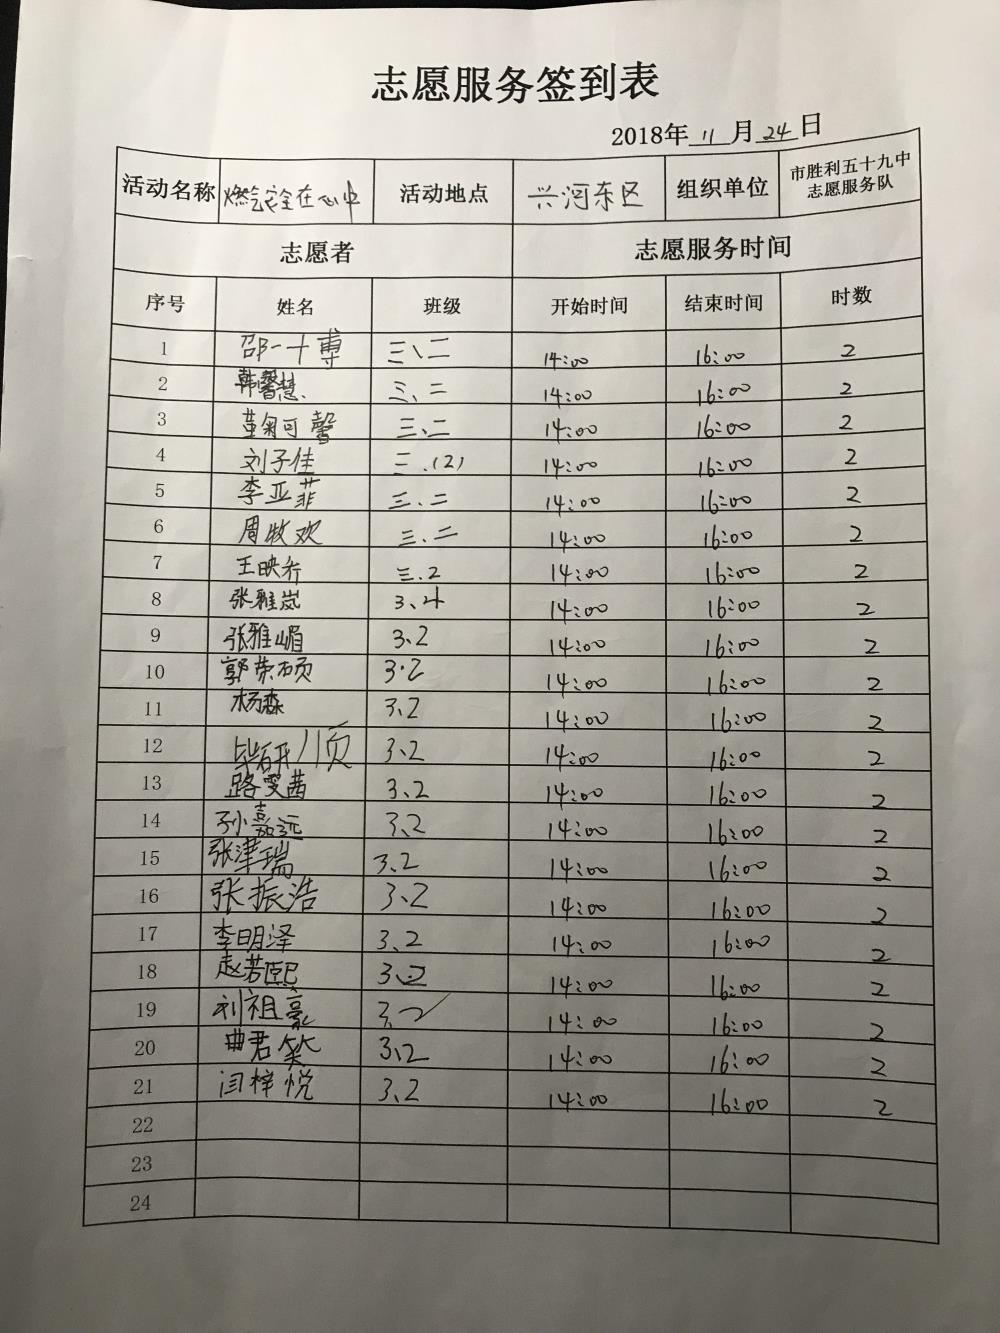 志愿服务签到表
2018年 11 月 24 日
活动名称 燃气安全在心中 活动地点 兴河东区 组织单位 市胜利五十九中志愿服务队
志愿者 志愿服务时间
序号 姓名 班级 开始时间 结束时间 时数
1 邵一十博 三、二 14:00 16:00 2
2 韩馨慧 三、二 14:00 16:00 2
3 董菊可馨 三、二 14:00 16:00 2
4 刘子佳 三.(2) 14:00 16:00 2
5 李亚菲 三、二 14:00 16:00 2
6 周牧欢 三、二 14:00 16:00 2
7 王映 三.2 14:00 16:00 2
8 张雅岚 3、4 14:00 16:00 2
9 张雅嵋 3.2 14:00 16:00 2
10 郭荣硕 3.2 14:00 16:00 2
11 杨森 3.2 14:00 16:00 2
12 毕研顺 3、2 14:00 16:00 2
13 路雯茜 3、2 14:00 16:00 2
14 孙嘉远 3、2 14:00 16:00 2
15 张津瑞 3、2 14:00 16:00 2
16 张振浩 3、2 14:00 16:00 2
17 李明泽 3、2 14:00 16:00 2
18 赵若熙 3、2 14:00 16:00 2
19 刘祖豪 3、2 14:00 16:00 2
20 曲君笑 3、2 14:00 16:00 2
21 闫梓悦 3、2 14:00 16:00 2
22
23
24